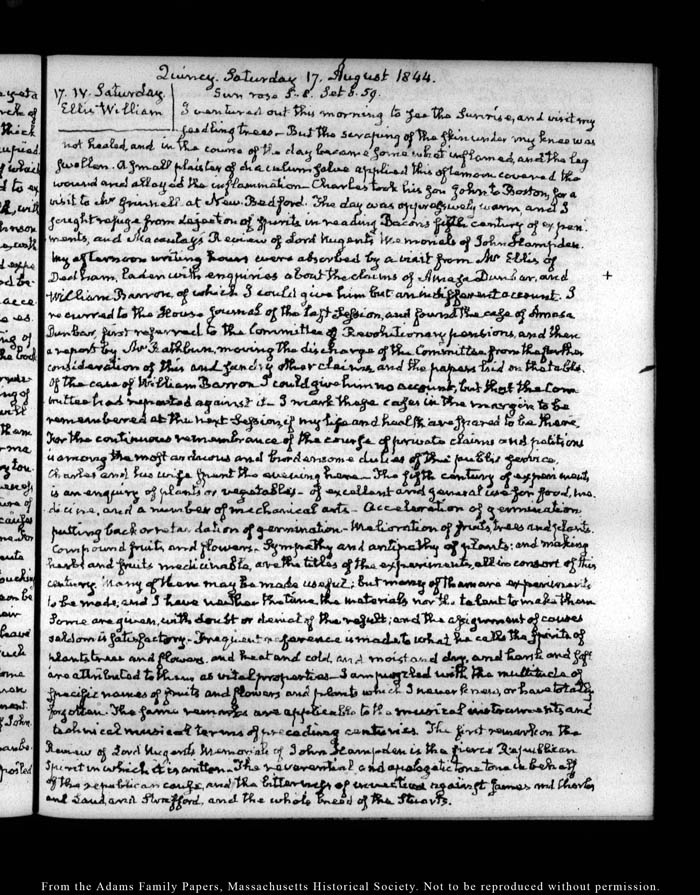 Quincy. Saturday 17. August 1844.
17. IV. Saturday.
Ellis William
Sun rose 5.8. Set 6.59.
I ventured out this morning to see the Sunrise, and visit my
seedling trees — But the scraping of the skin under my knee was
not healed, and in the course of the day became somewhat inflamed, and the leg
swollen. A small plaister of diaculum salve applied this afternoon covered the
wound and allayed the inflammation — Charles took his son John to Boston, for a
visit to Mr Grinnell at New Bedford. The day was oppressively warm, and I
sought refuge from dejection of spirits in reading Bacons fifth century of experi-
ments, and Macaulay's Review of Lord Nugents Memorials of John Hampden.
My afternoon writing hours were absorbed by a visit from Mr Ellis of
Dedham, laden with enquiries about the claims of Amasa Dunbar, and +
William Barron, of which I could give him but an indifferent account. I
recurred to the House Journal of the last Session, and found the case of Amasa
Dunbar, first referred to the Committee of Revolutionary pensions, and then
a report by Mr Rathbun, moving the discharge of the Committee from the further
consideration of this and sundry other claims, and the papers laid on the table.
Of the case of William Barron I could give him no account, but that the Com
mittee had reported against it — I mark these cases in the margin to be
remembered at the next Session, if my life and health are spared to be there.
For the continuous remembrance of the course of private claims and petitions
is among the most arduous and burdensome duties of the public service.
Charles and his wife spent the evening here — The fifth century of experiments
is an enquiry of plants or vegetables — of excellent and general use for food, me-
dicine, and a number of mechanical arts — Acceleration of germination
putting back or retardation of germination — Melioration of fruits, trees and plants.
Compound fruits and flowers. Sympathy and antipathy of plants: and making
herbs and fruits medicinable, are the titles of the experiments, all in consort of this
century. Many of them may be made useful; but many of them are experiments
to be made, and I have neither the time, the materials nor the talent to make them
Some are given, with doubt or denial of the result; and the assignment of causes
seldom is satisfactory — Frequent reference is made to what he calls the Spirits of
plants trees and flowers, and heat and cold, and moist and dry, and hard and soft
are attributed to them as vital properties — I am puzzled with the multitude of
specific names of fruits and flowers and plants which I never knew, or have totally
forgotten. The same remarks are applicable to the musical instruments and
technical musical terms of preceding centuries. The first remark on the
Review of Lord Nugents Memorials of John Hampden is the fierce Republican
Spirit in which it is written — The reverential and apologetic tone in behalf
of the republican cause, and the bitterness of invective against James and Charles
and Laud and Strafford, and the whole breed of the Stuarts.
From the Adams Family Papers, Massachusetts Historical Society. Not to be reproduced without permission.